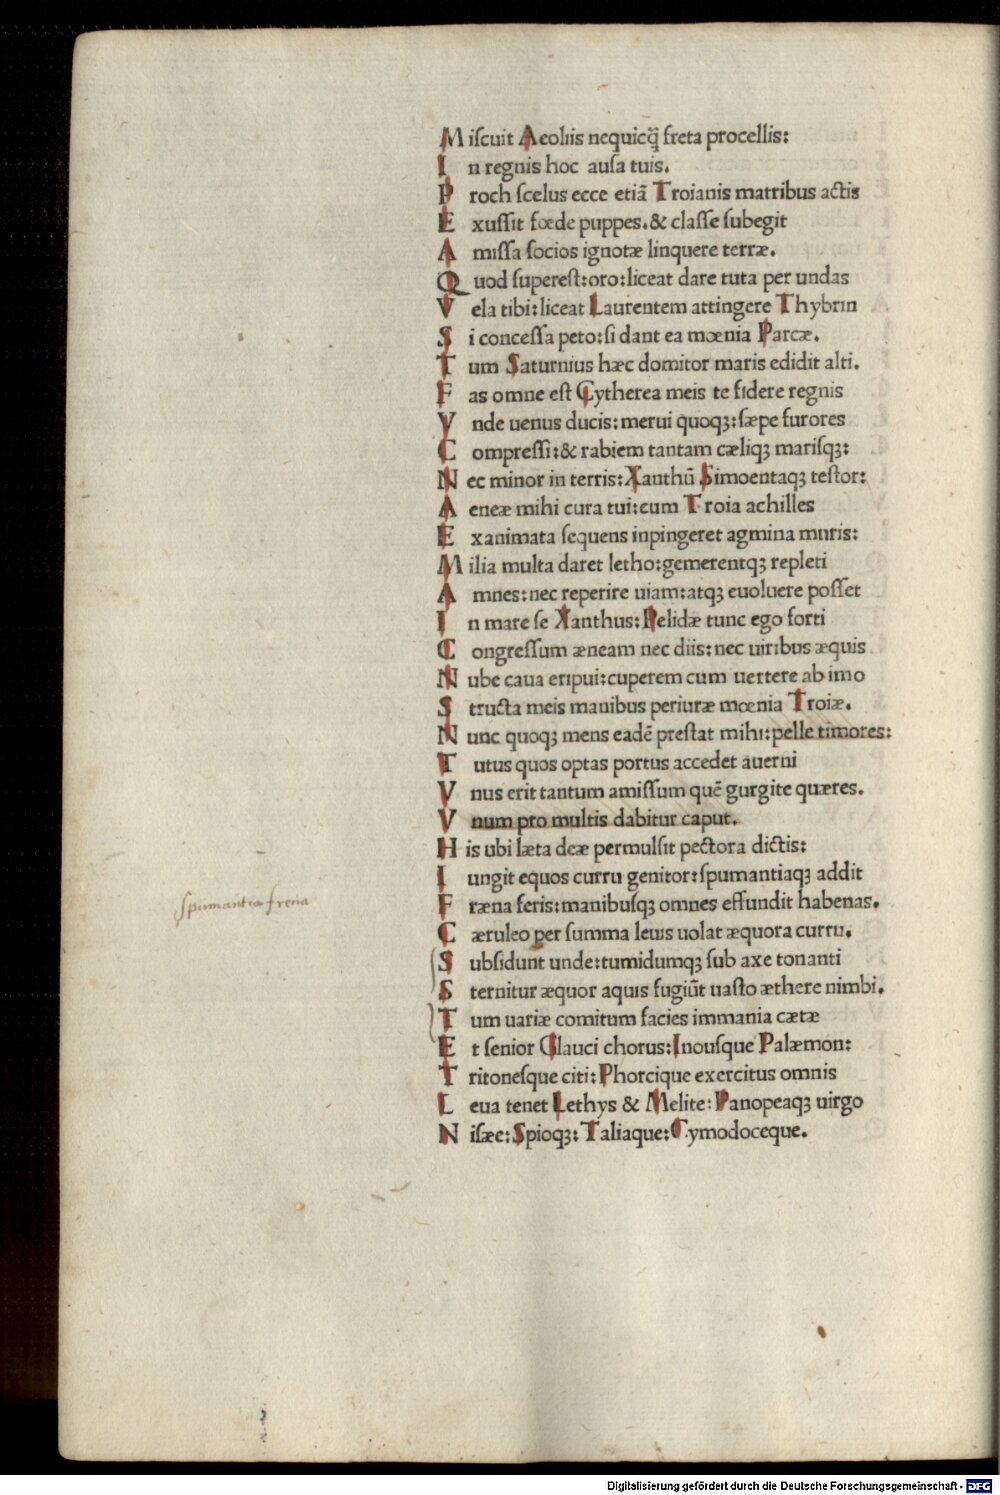 Miſcuit Aeoliis nequicꝗ̃ freta procellis:
In regnis hoc auſa tuis.
Proch ſcelus ecce etiã Troianis matribus actis
Exuſſit fœde puppes.& claſſe ſubegit
Amiſſa ſocios ignotæ linquere terræ.
Quod ſupereſt:oro:liceat dare tuta per undas
Vela tibi:liceat Laurentem attingere Thybrin
Si conceſſa peto:ſi dant ea mœnia Parcæ.
Tum Saturnius hæc domitor maris edidit alti.
Fas omne eſt Cytherea meis te fidere regnis
Vnde uenus ducis:merui quoqꝫ:ſæpe furores
Compreſſi:& rabiem tantam cæliqꝫ mariſqꝫ:
Nec minor in terris:Xanthũ Simoentaqꝫ teſtor:
Aeneæ mihi cura tui:cum Troia achilles
Exanimata ſequens inpingeret agmina muris:
Milia multa daret letho:gemerentqꝫ repleti
Amnes:nec reperire uiam:atqꝫ euoluere poſſet
In mare ſe Xanthus:Pelidæ tunc ego forti
Congreſſum æneam nec diis:nec uiribus æquis
Nube caua eripui:cuperem cum uertere ab imo
Structa meis manibus periuræ mœnia Troiæ.
Nunc quoqꝫ mens eadẽ preſtat mihi:pelle timores:
Tutus quos optas portus accedet auerni
Vnus erit tantum amiſſum quẽ gurgite quæres.
Vnum pro multis dabitur caput.
His ubi læta deæ permulſit pectora dictis:
Iungit equos curru genitor:ſpumantiaqꝫ addit
Fræna feris:manibuſqꝫ omnes effundit habenas.
ſpumantia frena
Cæruleo per ſumma leuis uolat æquora curru.
Subſidunt unde:tumidumqꝫ ſub axe tonanti
Sternitur æquor aquis fugiũt uaſto æthere nimbi.
Tum uariæ comitum facies immania cætæ
Et ſenior Glauci chorus:Inouſque Palæmon:
Tritoneſque citi:Phorcique exercitus omnis
Leua tenet Lethys & Melite:Panopeaqꝫ uirgo
Niſæe:Spioqꝫ:Taliaque:Cymodoceque.
Digitalisierung gefördert durch die Deutsche Forschungsgemeinschaft - DFG